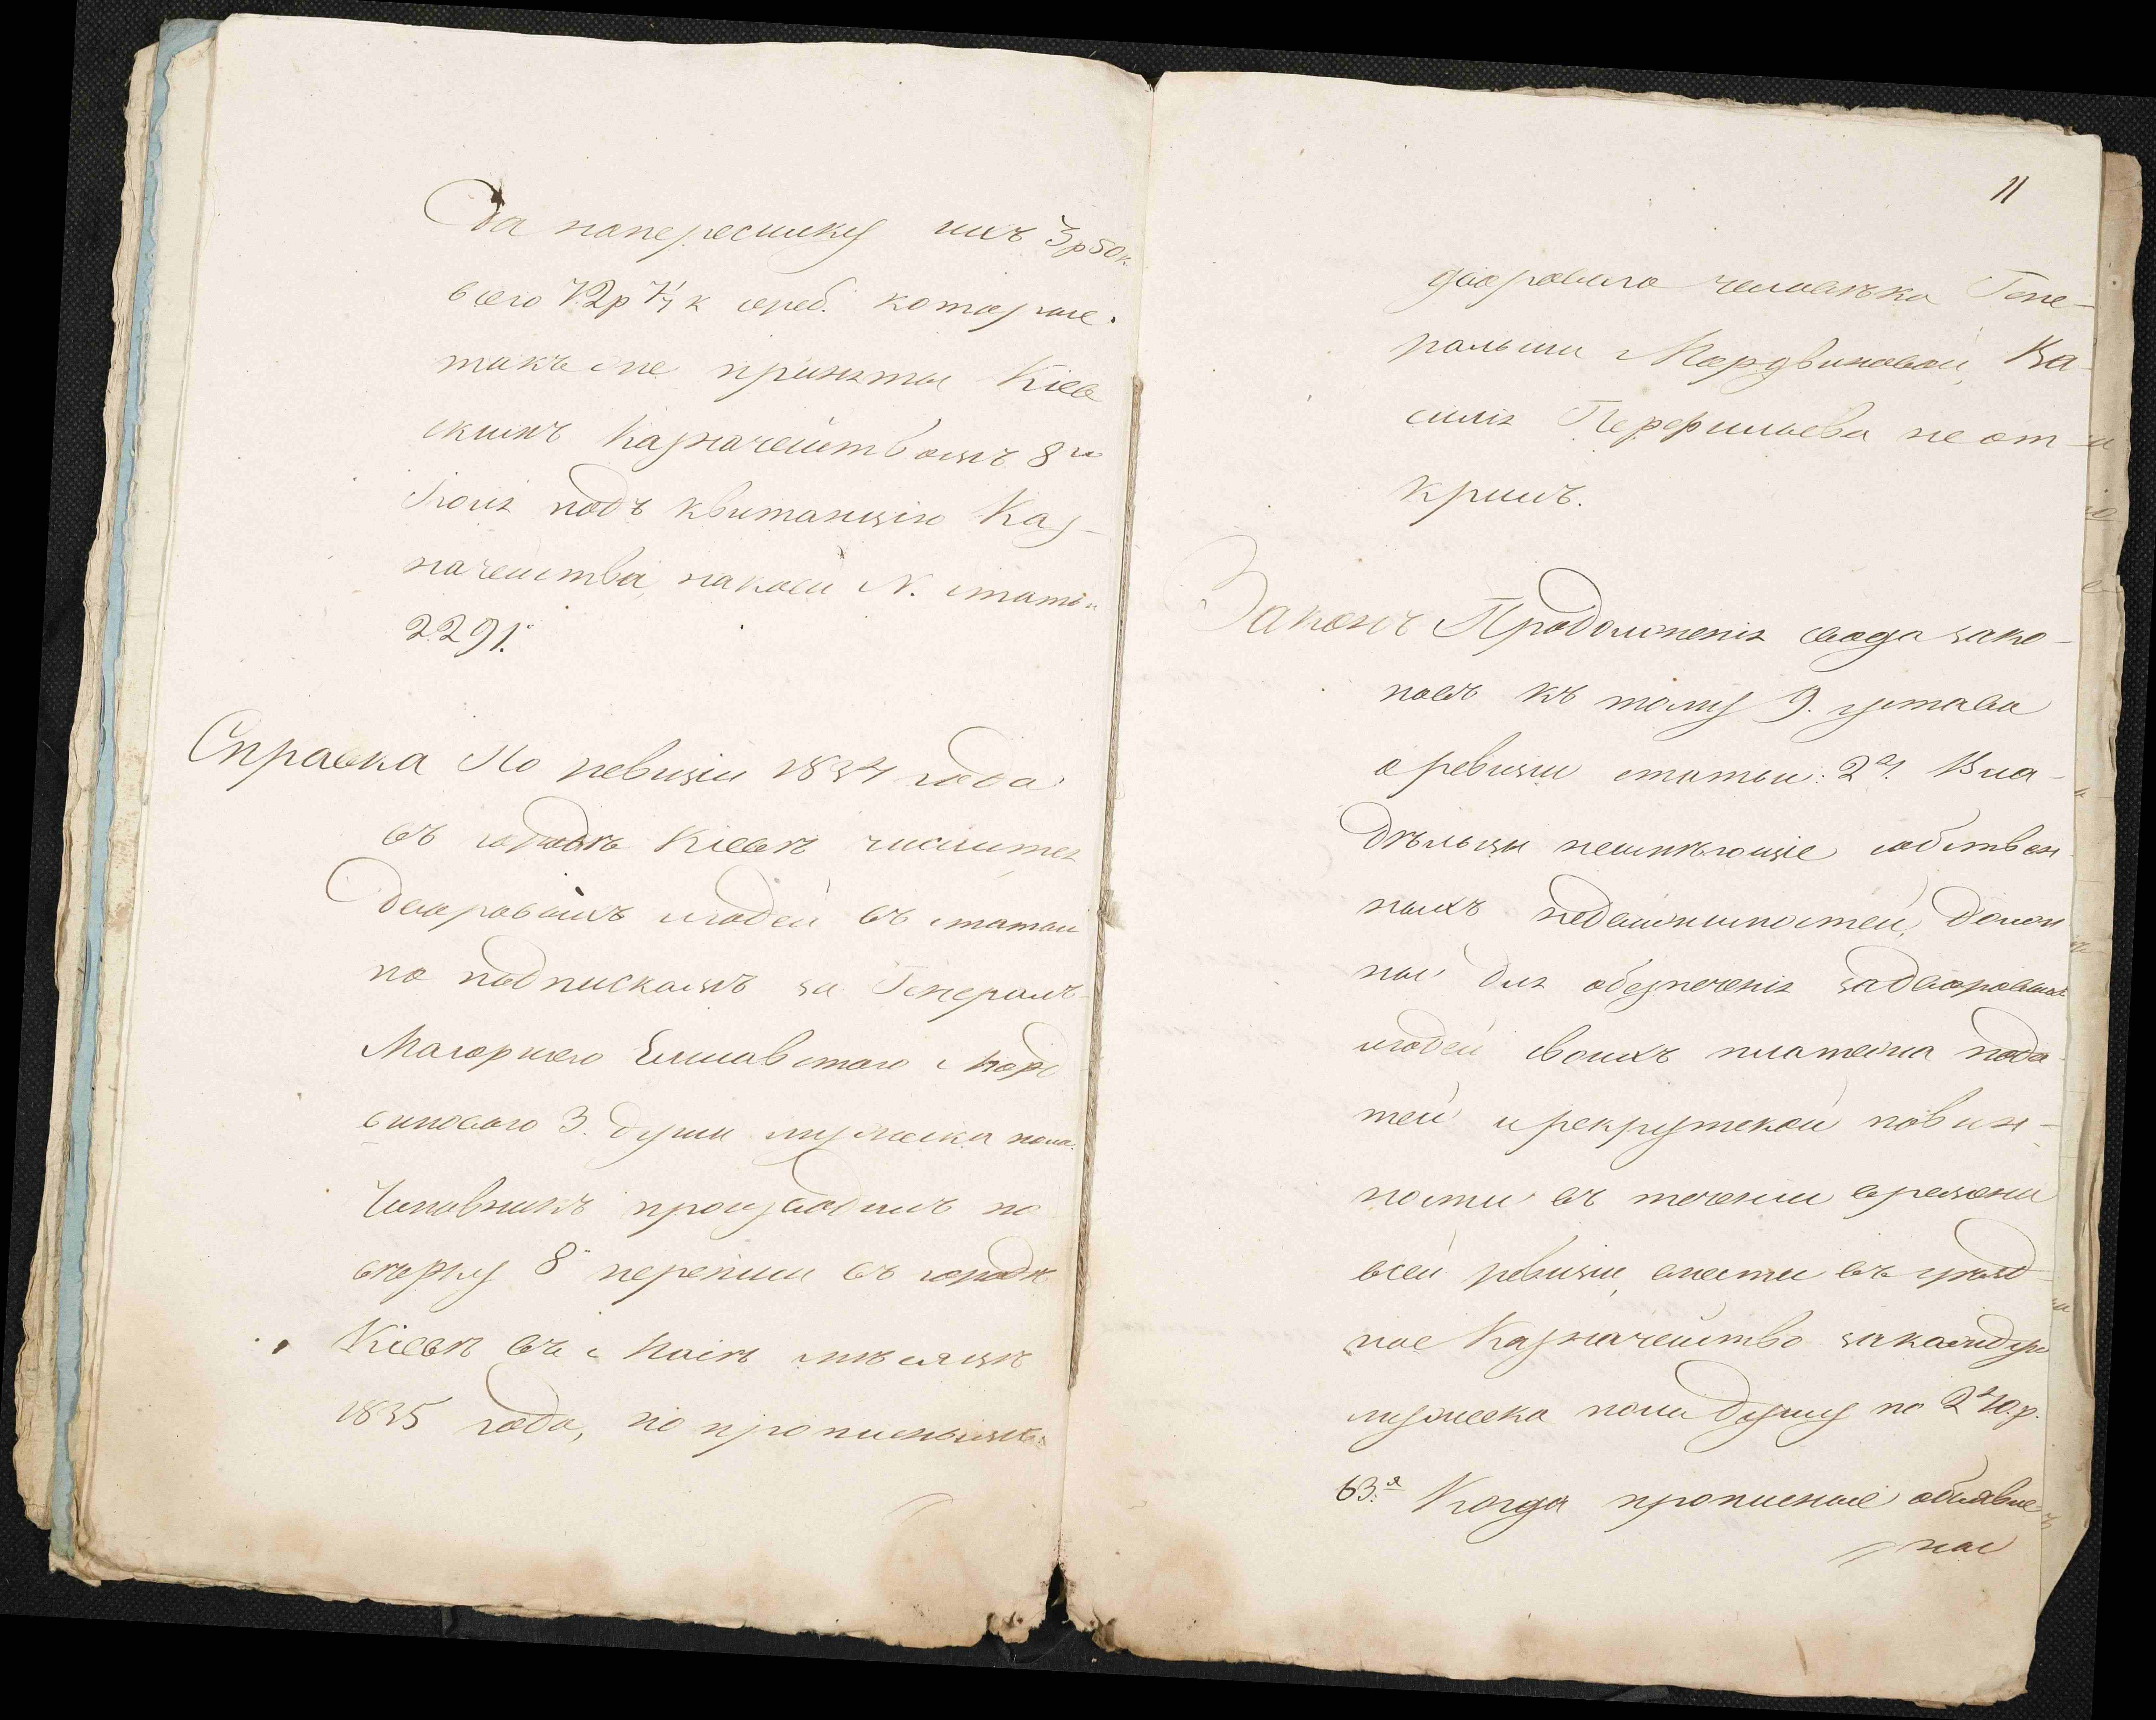 Да на пересилку ихъ 3 р 50 к.
всего 72 р 1/7 к сереб. которые
такъ же приняты Кіев
скимъ Казначействомъ 8го
Іюля подъ квитанцію Каз-
начейства, на коей N. статьи
2291.
Справка По ревизіи 1834 года
въ городѣ Кіевѣ числится
Дворовыхъ людей въ статьи
по подпискамъ за Генералъ-
Маіоршею Елисаветою Морд
виновою 3. души мужеска пола.
Чиновникъ производивъ по
вѣрку 8й переписи въ городѣ
Кіевѣ въ Маіѣ мѣсяцѣ
1835 года, по прописнымъ
11
двороваго человѣка Гене-
ральши Мордвиновой, Ва-
силія Перфильева не от-
крылъ.
Законъ Продолженія свода зако-
новъ къ тому 9. устава
о ревизіи статьи: 2я. Вла-
дѣльцы неимѣющіе собствен
ныхъ недвижимостей, долж
ны для обезпеченія за дворовыхъ
людей своихъ платежа пода-
тей и рекрутской повин-
ности въ теченіи времени
всей ревизіи, внести въ уѣзд-
ное Казначейство за каждую
мужеска пола душу по 240. р.
63.я Когда прописные объявле-
ны